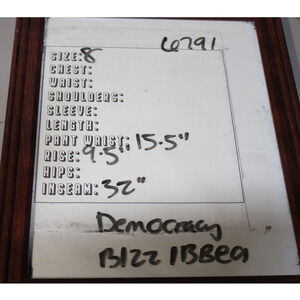 6291
SIZE: 8
CHEST:
WAIST:
SHOULDERS:
SLEEVE:
LENGTH:
PANT WAIST: 15.5"
RISE: 9.5"
HIPS:
INSEAM: 32"
Democracy
B1221BBea